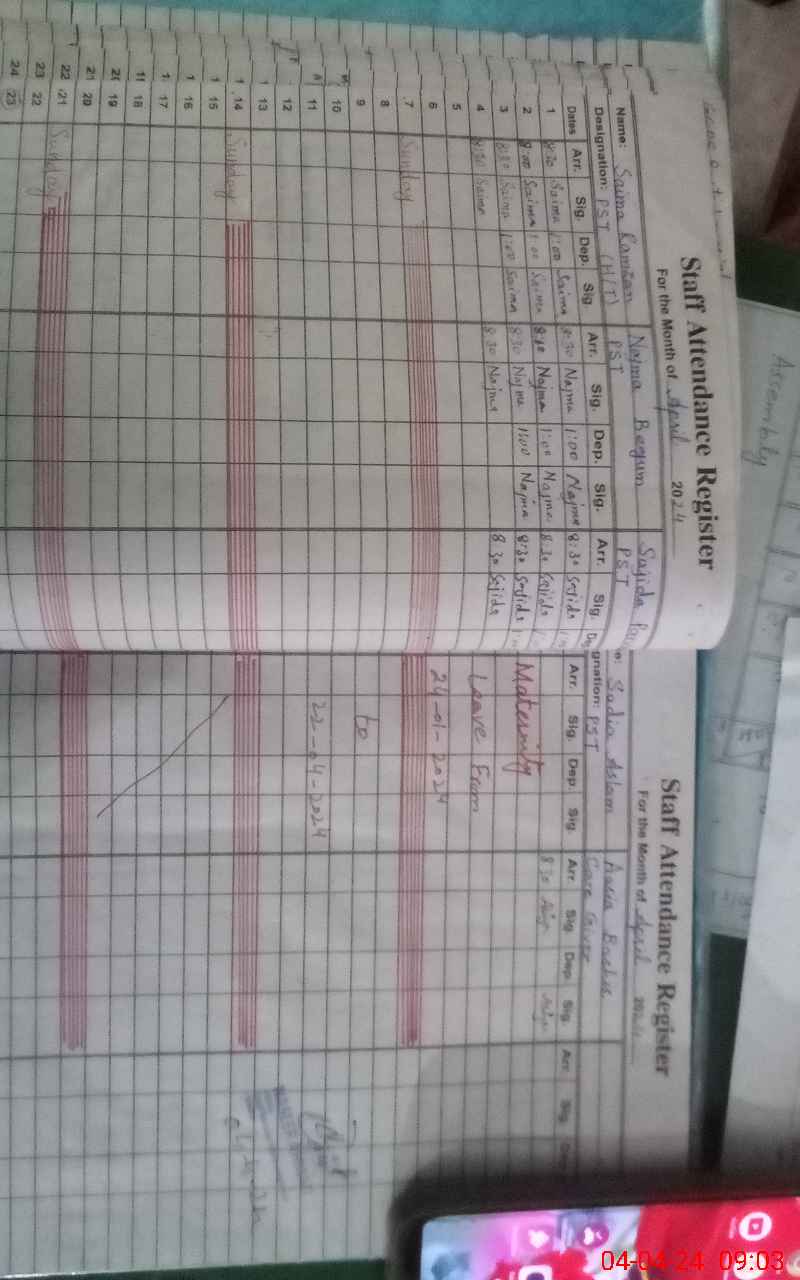 Staff Attendance Register
For the Month of April 2024
Name: Saima Ramzan Najma Begum Sajida
Designation: PST (H/T) PST PST
Dates Arr. Sig. Dep. Sig Arr. Sig. Dep. Sig. Arr. Sig.
1 8:30 Saima 1:00 Saima 8:30 Najma 1:00 Najma 8:30 Sajida
2 8:00 Saima 1:00 Saima Najma 1:00 Najma 8:30 Sajida
3 8:30 Saima 1:00 Saima 8:30 Najma 1:00 Najma 8:30 Sajida
4 8:30 Saima 8:30 Najma 8:30 Sajida
5
6
7 Sunday
8
9
10
11
12
13
14 Sunday
15
16
17
18
19
20
21 Sunday
22
23
Staff Attendance Register
For the Month of April 2024
Sadia Aslam Asia Bashir
Designation: PST Care Giver
Arr. Sig. Dep. Sig. Arr. Sig. Dep. Sig. Arr. Sig.
8:30
Maternity
Leave From
24-01-2024
to
22-04-2024
Assembly
04-04-24 09:03